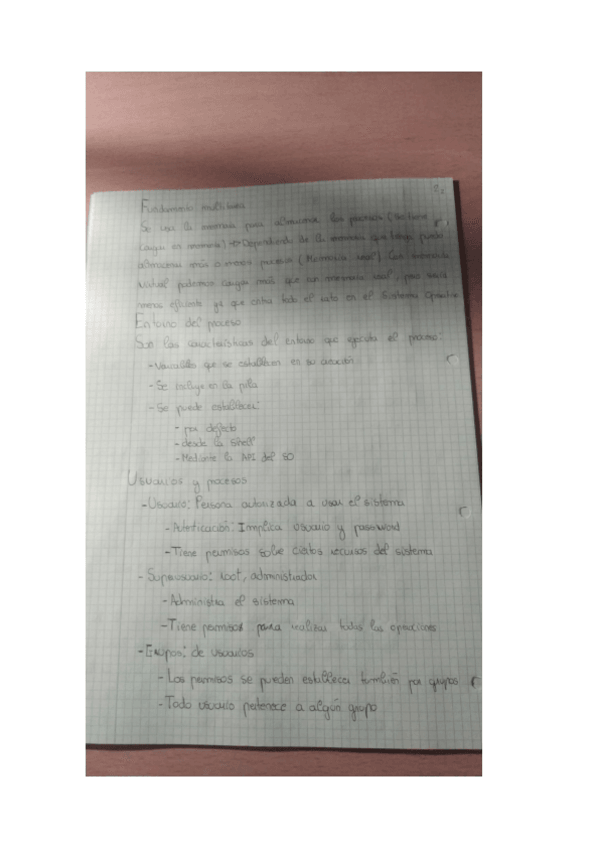 2.
Fundamento multitarea
Se usa la memoria para almacenar los procesos (Se tiene
cargar en memoria) => Dependiendo de la memoria que tenga puedo
almacenar más o menos procesos (Memoria real) Con memoria
virtual podemos cargar más que con memoria real, pero será
menos eficiente ya que entra todo el rato en el Sistema Operativo
Entorno del proceso
Son las características del entorno que ejecuta el proceso:
-Variables que se establecen en su creación
-Se incluye en la pila
-Se puede establecer:
- por defecto
- desde la shell
-Mediante la API del SO
Usuarios y procesos
-Usuario: Persona autorizada a usar el sistema
-Autentificación: Implica usuario y password
-Tiene permisos sobre ciertos recursos del sistema
- Superusuario: root, administrador
-Administra el sistema
-Tiene permisos para realizar todas las operaciones
-Grupos: de usuarios
- Los permisos se pueden establecer también por grupos
- Todo usuario pertenece a algún grupo